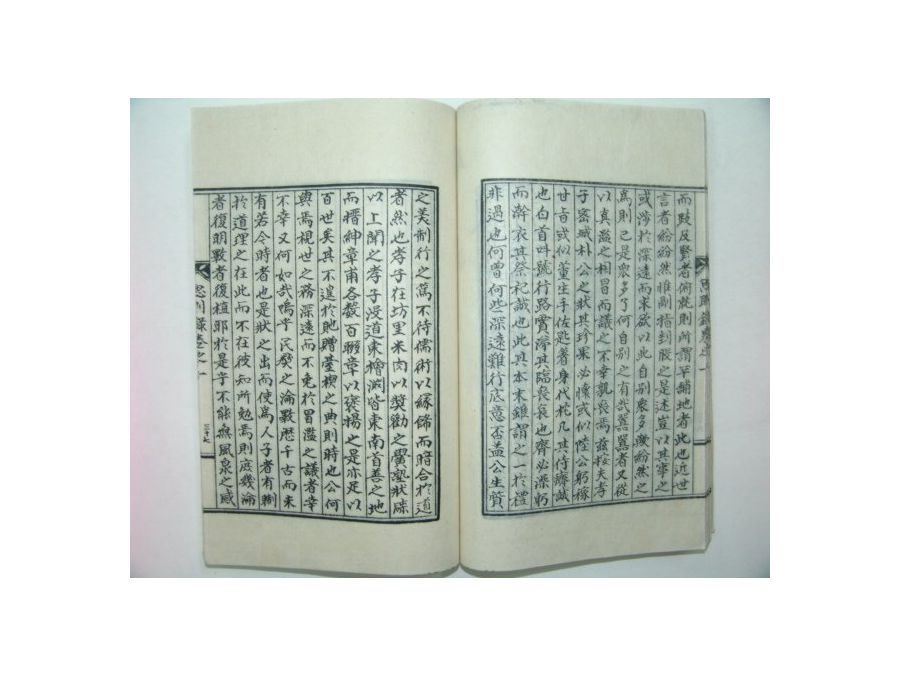 而跂及賢者俯就則所謂平鋪地者此也近世
言者紛紛然惟劃指刲股之是述豈以其事之
或涉於深遠而來欲以此自別衆多機紛然之
爲則已是衆多了何自別之有哉囂囂者又從
以眞濫之相冒而議之不幸孰長焉玆按夫孝
子密城朴公之狀其珍果必懷或似陸公躬稼
甘旨或似董生手佐匙著身代枕几其侍癠誠
也白首叫號行路實涕其臨喪哀也齊必深躬
而澣衣其祭祀誠也此其本末雖謂之一於禮
非過也何曾何些深遠難行底意否盖公生質
之美制行之篤不待儒術以緣飾而暗合於道
者然也孝子在坊里米肉以獎勸之黌塾狀牒
以上聞之孝子沒道東檜淵皆東南首善之地
而搢紳章甫各數百聯章以褒揚之是亦足以
百世矣其不遑於貤贈塋楔之典則時也公何
與焉視世之務深遠而不免於冒濫之議者幸
不幸又何如哉嗚乎民彛之淪斁歷千古而未
有若今時者也是狀之出而使爲人子者有
於道理之在此而不在彼知所勉焉則庶幾淪
者復明斁者復植耶於是乎不能無風泉之感
思川錄卷之一
三十七